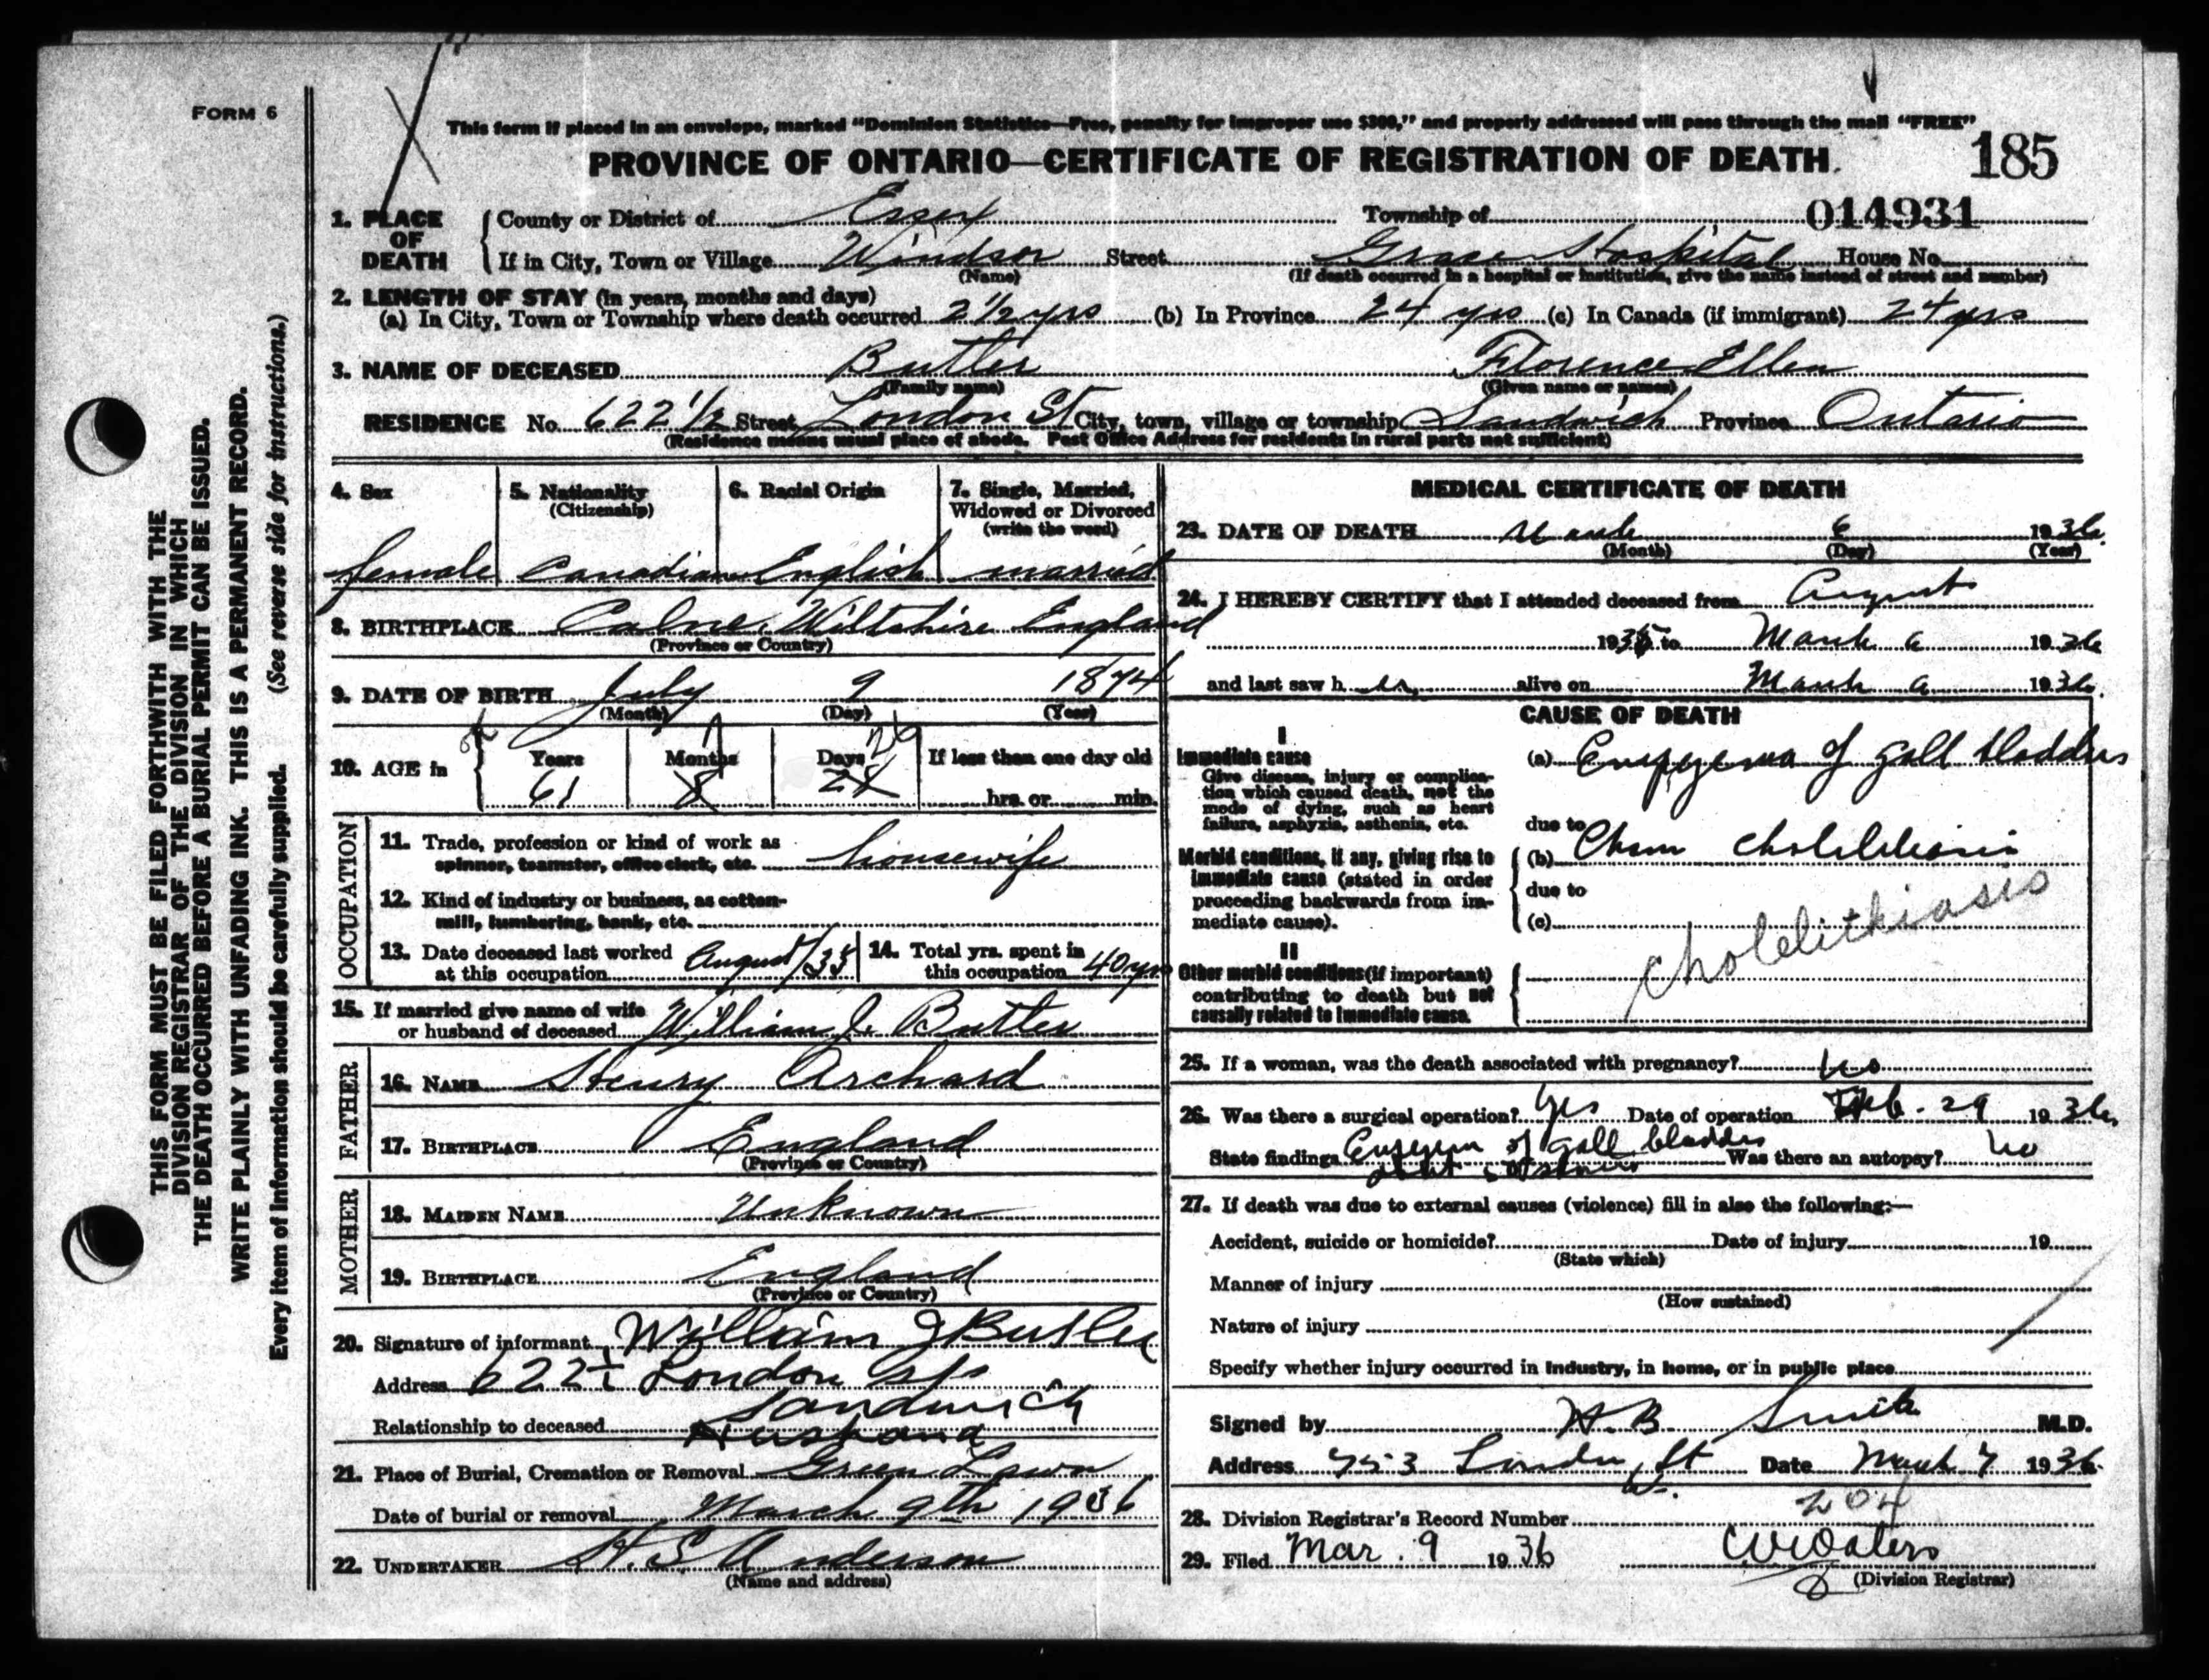 FORM 6
This form if placed in an envelope, marked "Dominion Statistics—Free, penalty for improper use $300," and properly addressed will pass through the mail "FREE"
PROVINCE OF ONTARIO—CERTIFICATE OF REGISTRATION OF DEATH. 185
014931
1. PLACE OF DEATH
County or District of Essex Township of
If in City, Town or Village Windsor Street Grace Hospital House No.
(Name) (If death occurred in a hospital or institution, give the name instead of street and number)
2. LENGTH OF STAY (in years, months and days)
(a) In City, Town or Township where death occurred 2 1/2 yrs (b) In Province 24 yrs (c) In Canada (if immigrant) 24 yrs
3. NAME OF DECEASED Butler Florence Ellen
(Family name) (Given name or names)
RESIDENCE No. 622 1/2 Street London St City, town, village or township Sandwich Province Ontario
(Residence means usual place of abode. Post Office Address for residents in rural parts not sufficient)
4. Sex
female
5. Nationality
(Citizenship)
Canadian
6. Racial Origin
English
7. Single, Married,
Widowed or Divorced
(write the word)
married
8. BIRTHPLACE Calne, Wiltshire England
(Province or Country)
9. DATE OF BIRTH July 9 1874
(Month) (Day) (Year)
10. AGE in Years Months Days 26 If less than one day old
61 8 28 hrs. or min.
OCCUPATION
11. Trade, profession or kind of work as
spinner, teamster, office clerk, etc. housewife
12. Kind of industry or business, as cotton-
mill, lumbering, bank, etc.
13. Date deceased last worked
at this occupation August/35
14. Total yrs. spent in
this occupation 40 yrs
15. If married give name of wife
or husband of deceased William J. Butler
FATHER
16. NAME Henry Archard
17. BIRTHPLACE England
(Province or Country)
MOTHER
18. MAIDEN NAME Unknown
19. BIRTHPLACE England
(Province or Country)
20. Signature of informant William J Butler
Address 622 1/2 London St
Sandwich
Relationship to deceased Husband
21. Place of Burial, Cremation or Removal Green Lawn
Date of burial or removal March 9th 1936
22. UNDERTAKER H. S. Anderson
(Name and address)
MEDICAL CERTIFICATE OF DEATH
23. DATE OF DEATH March 6 1936
(Month) (Day) (Year)
24. I HEREBY CERTIFY that I attended deceased from August
1935 to March 6 1936
and last saw her alive on March 6 1936
CAUSE OF DEATH
I
Immediate cause
Give disease, injury or complica-
tion which caused death, not the
mode of dying, such as heart
failure, asphyxia, asthenia, etc.
(a) Empyema of gall bladder
due to
Morbid conditions, if any, giving rise to
immediate cause (stated in order
proceeding backwards from im-
mediate cause).
(b) cholelithiasis
due to
(c)
cholelithiasis
II
Other morbid conditions (if important)
contributing to death but not
causally related to immediate cause.
25. If a woman, was the death associated with pregnancy? no
26. Was there a surgical operation? Yes Date of operation Feb. 29 1936
State findings Empyema of gall bladder
Was there an autopsy? no
27. If death was due to external causes (violence) fill in also the following:—
Accident, suicide or homicide? Date of injury 19
(State which)
Manner of injury
(How sustained)
Nature of injury
Specify whether injury occurred in industry, in home, or in public place
Signed by H. B. Smith M.D.
Address 753 London St W. Date March 7 1936
28. Division Registrar's Record Number 204
29. Filed Mar. 9 1936
(Division Registrar)
THIS FORM MUST BE FILED FORTHWITH WITH THE
DIVISION REGISTRAR OF THE DIVISION IN WHICH
THE DEATH OCCURRED BEFORE A BURIAL PERMIT CAN BE ISSUED.
WRITE PLAINLY WITH UNFADING INK. THIS IS A PERMANENT RECORD.
Every item of information should be carefully supplied. (See reverse side for instructions.)